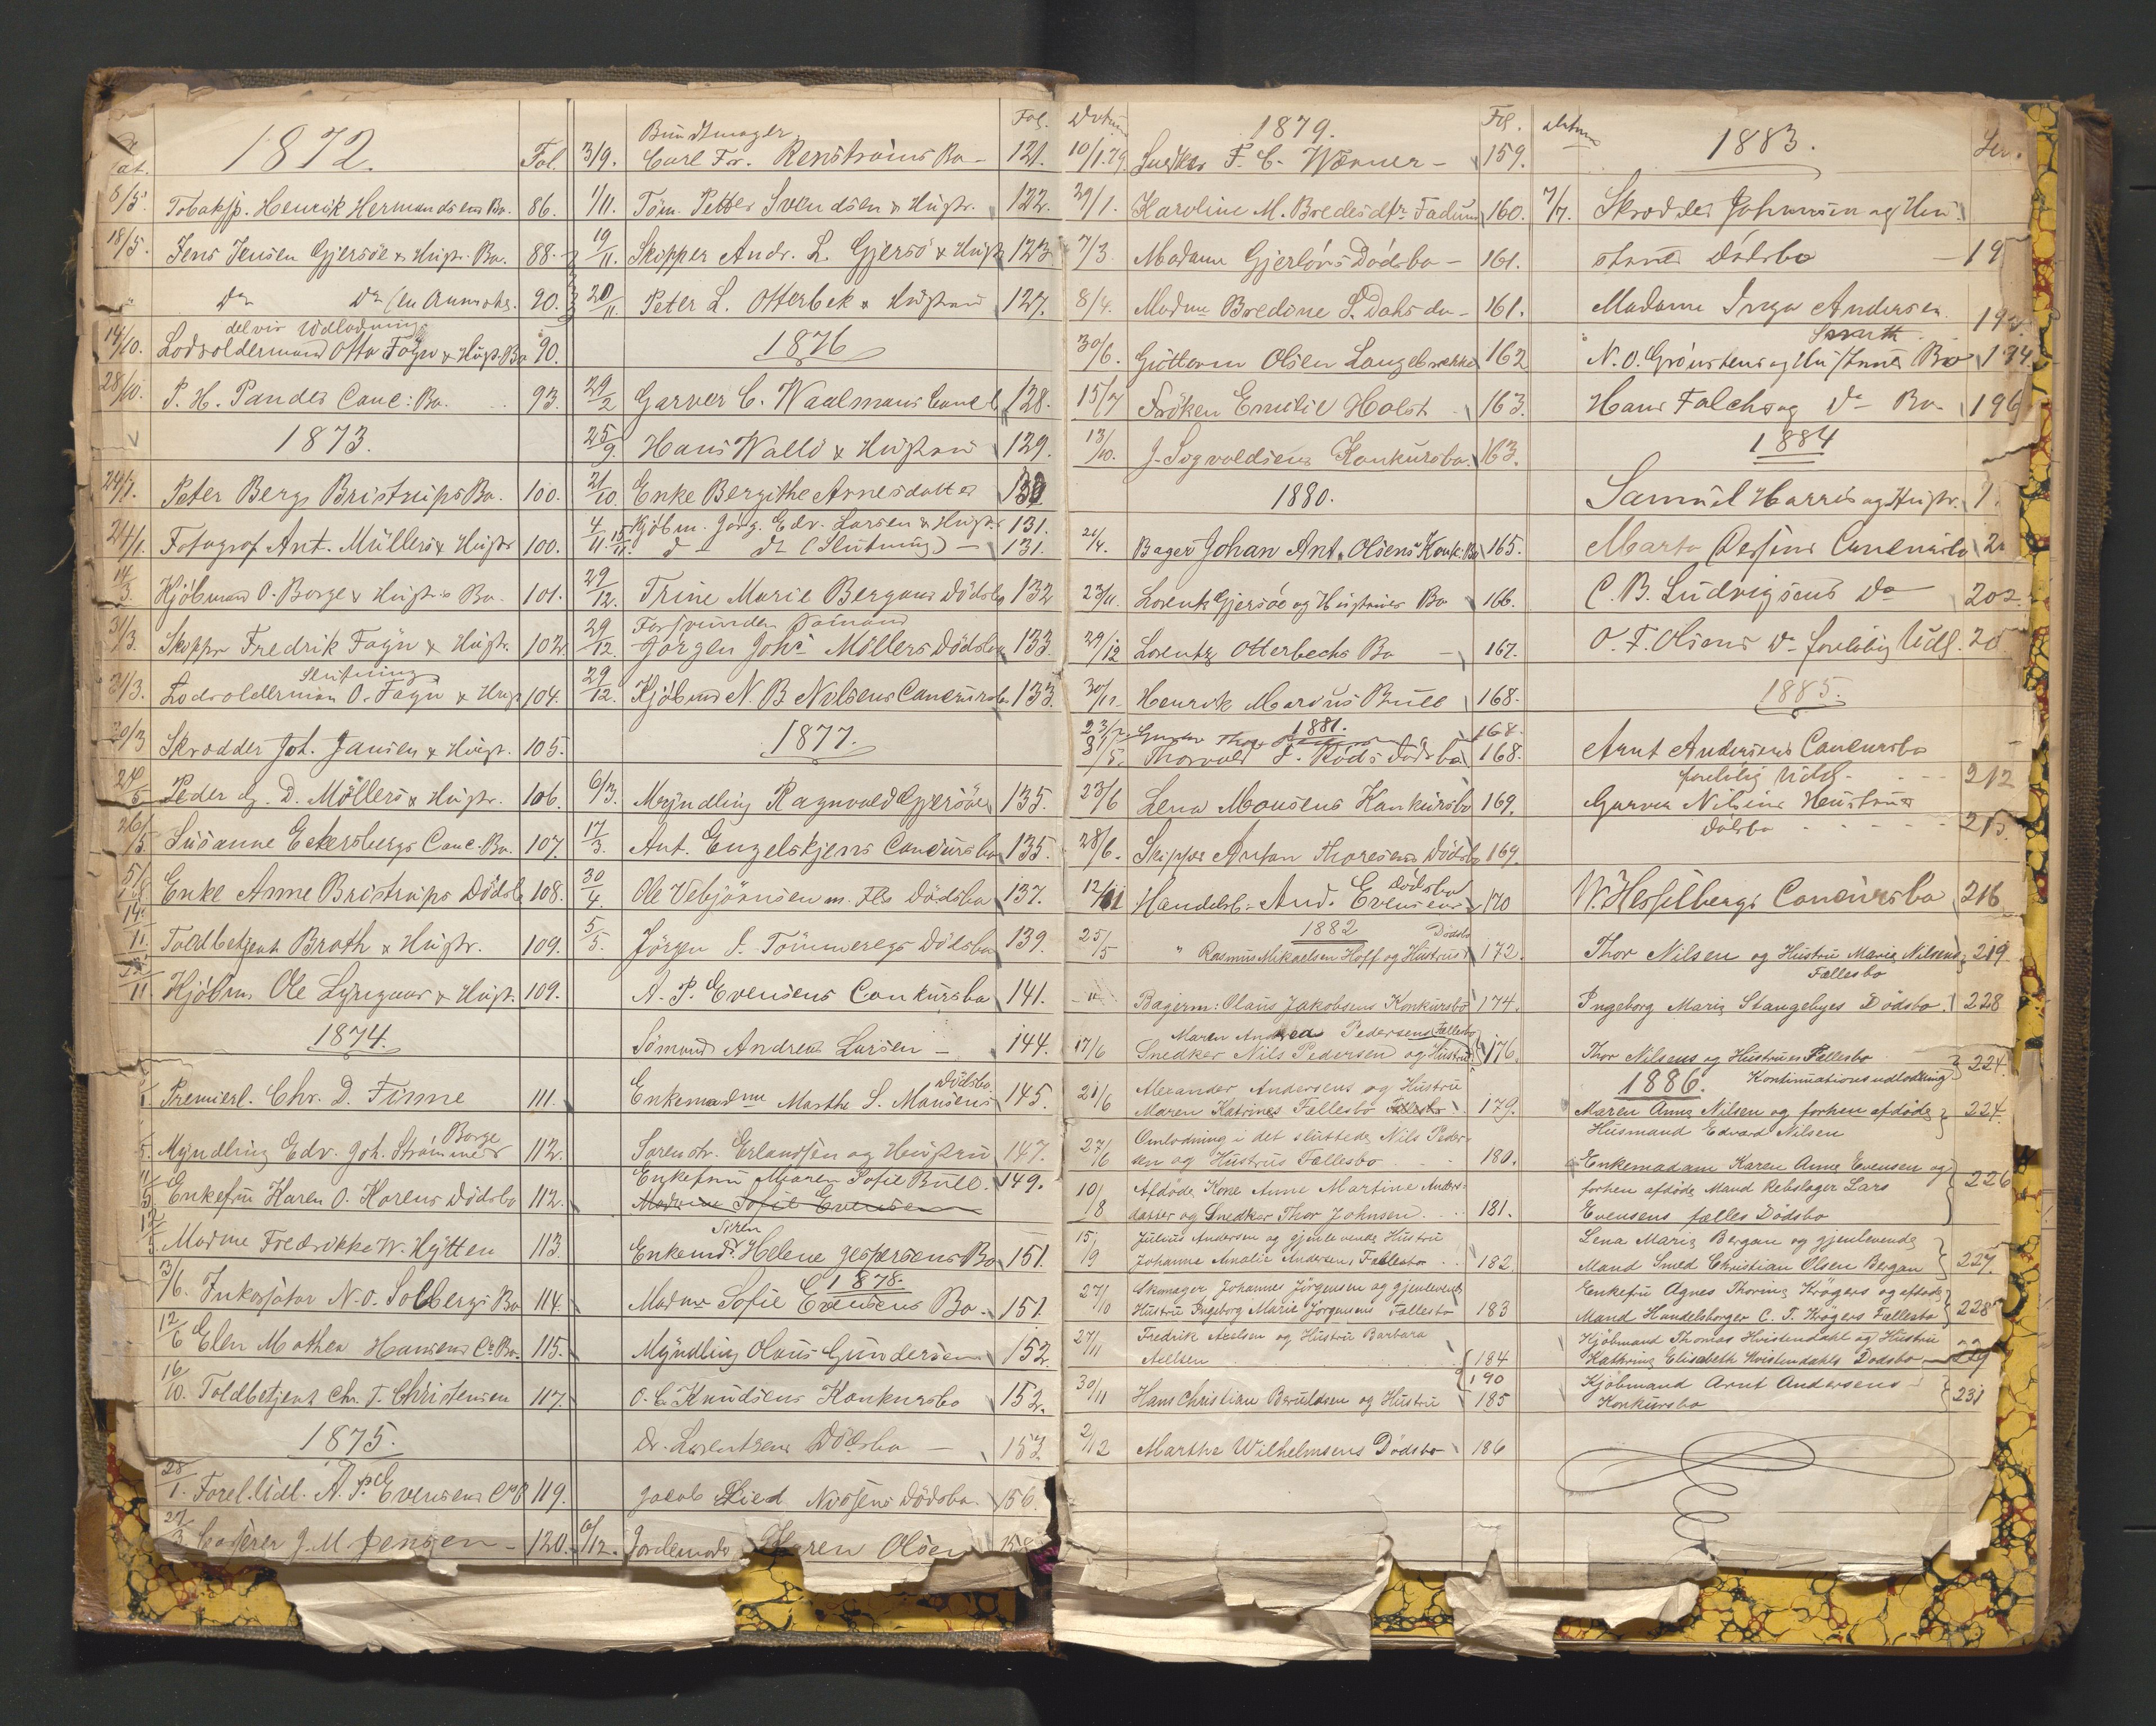 Dat. 1872. Fol.
8/5. Tobaksp. Henrik Hermandsens Bo. 86.
18/5. Jens Jensen Gjersöe & Hustr. Bo. 88.
" Do Do (en Anmrkg. 90.
delvis Udlodning
14/10. Lodsoldermand Otto Föyn & Hust. Bo 90.
28/10. P. H. Pandes Conc: Bo. 93.
1873.
24/1. Peter Bergs Bristrups Bo. 100.
24/1. Fotograf Ant. Müllers & Hustr 100.
14/3 Kjöbmand O. Borge & Hustr.s Bo. 101.
31/3. Skipper Fredrik Föyn & Hustr. 102.
Slutning
31/3. Lodsolderman O. Föyn & Hust 104.
20/3 Skrædder Joh. Jansen & Hustr. 105.
24/5 Peder dy. D. Möllers & Hustr. 106.
26/5 Susanne Eckersbergs Conc. Bo. 107.
5/8 Enke Anne Bristrups Dödsb 108.
14/11. Toldbetjent Broth & Hustr. 109.
/11 Kjöbm. Ole Lyngaas & Hust. 109.
1874.
Premierl. Chr. D. Finne 111.
Borge
Myndling Edv. Joh. Strömme 112.
11/5. Enkefru Karen O. Horens Dödsbo 112.
12/5. Madme Fredrikke W. Hÿtten 113.
3/6. Inkassator N. O. Solbergs Bo 114.
12/6 Elen Mathea Hansens Cc. Bo. 115.
16/10. Toldbetjent Chr. T. Christensen 117.
1875.
28/1. Forel. Udl. A. P. Evensens CcB 119.
27/3. Casserer J. M. Jensen - 120.
Fol.
Bundtmager
3/9. Carl Fr. Renströms Bo - 121.
1/11. Töm. Petter Svendsen & Hustr. 122.
19/11. Skipper Andr. L. Gjersö & Hust 123
20/11 Peter L. Otterbek & Hustru 127.
1876
29/2 Garver C. Waalmans Conc b 128.
25/9. Hans Wallö & Hustru 129.
21/10. Enke Bergithe Arnesdatter 130
4/11 Kjöbm. Jörg. Edv. Larsen & Hustr 131.
15/11. d - do (Slutning) - 131.
29/12. Trine Marie Bergans Dödsbo 132
Forsvunden Sömand
29/12. Jörgen Johs Möllers Dödsbo 133.
29/12. Kjöbmd N. B. Nilsens Concursbo 133.
1877.
6/3. Myndling Ragnvald Gjersöe 135.
17/3. Ant. Engelskjens Concursbo 135.
30/4. Ole Vebjörnsen m. Fls Dödsbo 137.
5/5. Jörgen S. Tömmeregs Dödsbo 139.
A. P. Evensens Conkursbo 141.
Sömand Andreas Larsen - 144.
Dödsbo
Enkemadme Marthe S. Monsens 145.
Sorenskr. Erlandsen og Hustru 147.
Enkefru Maren Sofie Bull. 149.
Madame Sofie Evensen
Siren
Enkemd. Helene Jespersens Bo 151.
1878.
Madme Sofie Evensens Bo. 151.
Myndling Olaus Gundersen 152.
O. C. Knudsens Konkursbo 152.
Dr. Lorentzens Dödsbo - 153.
Jacob Lied Nissens Dödsbo. 156.
6/12. Jordemoder Karen Olsen 158
Datum 1879. Fol.
10/1.79. Snedker F. C. Wörner - 159.
29/1. Karoline M. Bredesdtr Fadum 160.
7/3 Madam Gjerlövs Dödsbo - 161.
8/4. Madme Bredine S. Dahs do - 161.
30/6. Guttorm Olsen Langebrække 162
15/7 Fröken Emilie Holst 163.
13/10. J. Sigvaldsens Konkursbo. 163.
1880.
26/4. Bager Johan Ant. Olsens Konk. Bo 165.
23/11. Lorentz Gjersöe og Hustrues Bo 166.
29/12 Lorentz Otterbechs Bo - 167.
30/12. Henrik Marius Bull 168.
1881.
168.
31/5. Thorvald F. Röds Dödsbo 168.
23/6 Lena Monsens Konkursbo 169.
28/6. Skipper Anton Thoresens Dödsbo 169.
Dödsbo
12/11 Handelsb. And. Evensens 170
1882
Dödsbo
25/5 " Rasmus Mikaelsen Hoff og Hustrus 172.
- " Bagerm: Olaus Jakobsens Konkursbo 174.
Maren Andrea Pedersens Fællesbo
17/6 Snedker Nils Pedersen og Hustru 176.
21/6 Alexander Andersens og Hustru
Maren Katrines Fællesbo Fællesbo 179.
27/6 Omlodning i det sluttede Nils Peder-
sen og Hustrus Fællesbo 180.
10/8 Afdöde Kone Anne Martine Anders-
datter og Snedker Thor Johnsen 181.
15/9 Julius Andersen og gjenlevende Hustru
Johanne Amalie Andersens Fællesbo 182.
27/10 Skomager Johannes Jörgensen og gjenlevende
Hustru Ingeborg Marie Jörgensens Fællesbo 183
27/11 Fredrik Axelsen og Hustru Barbara
Axelsen 184
190
30/11 Hans Christian Beruldsen og Hustru 185
2/12 Marthe Wilhelmsens Dödsbo 186
Datum 1883.
7/7. Skrædder Johannsen og Hu-
strues Dödsbo - 19
Madame Inga Andersen 19
N. O. Grönstens og Hustrues Bo 194.
Hans Falchs og Do Bo. 196
1884
Samuel Harris og Hustr.
Marta Concursbo 2
C. B. Ludvigsens Do 202.
O. F. Olsens Do forelöbig Udl. 20
1885.
Arnt Andersens Concursbo
forelöbig Udl. 212
Garver Nilsens Hustrues
Dödsbo 215.
W. Hesselbergs Concursbo 216
Thor Nilsen og Hustru Marie Nilsens 219
Fællesbo
Ingeborg Marie Stangebyes Dödsbo. 228
Thor Nilsens og Hustrues Fællesbo
Kontinuationsudlodning 224.
1886.
Maren Anne Nilsen og forhen afdöde 224.
Husmand Edvard Nilsen
Enkemadam Karen Anne Evensen og
forhen afdöde Mand Rebslager Lars 226
Evensens fælles Dödsbo
Lena Marie Bergan og gjenlevende
Mand Smed Christian Olsen Bergan 227.
Enkefru Agnes Thorine Krögers og afdöde
Mand Handelsborger C. T. Krögers Fællesbo 228
Kjöbmand Thomas Hvistendahl og Hustru
Kathrine Elisabeth Hvistendahls Dödsbo 229
Kjöbmand Arnt Andersens
Konkursbo 231